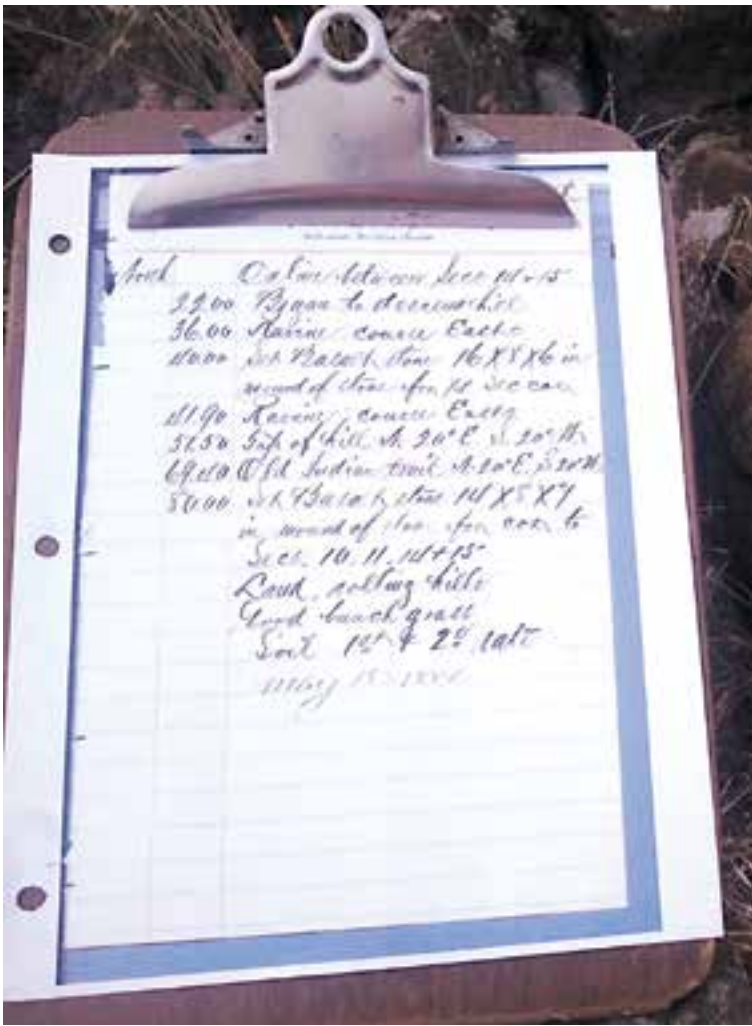 North On line between Secs 14 + 15
22.00 Began to descend hill
36.00 Ravine course East
40.00 Set Basalt stone 16 X 8 X 6 in
mound of stone for 1/4 sec cor
41.90 Ravine course East
51.50 Top of hill N. 20° E. S. 20° W.
69.40 Old Indian trail N. 20° E. S 20 W
80.00 Set Basalt stone 14 X 8 X 7
in mound of stone for cor. to
Secs. 10. 11. 14 + 15
Land, rolling hills
Good bunch grass
Soil 1st & 2d rate
May